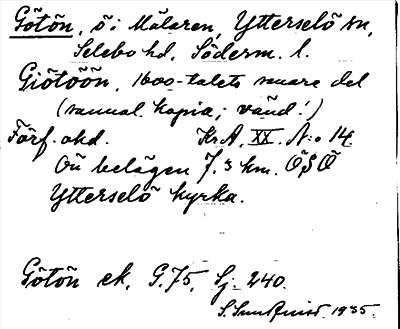 Götön, ö i Mälaren, Ytterselö sn,
Selebo hd, Söderm. l.
Giötöön, 1600-talets senare del
(samml. kopia; vänd!)
Förf. okd. Kr.A. XX. N:o 14
Ön belägen 7.3 km. ÖSÖ
Ytterselö kyrka.
Götön ek. G.75, Sj. 240.
S. Sundquist 1935.